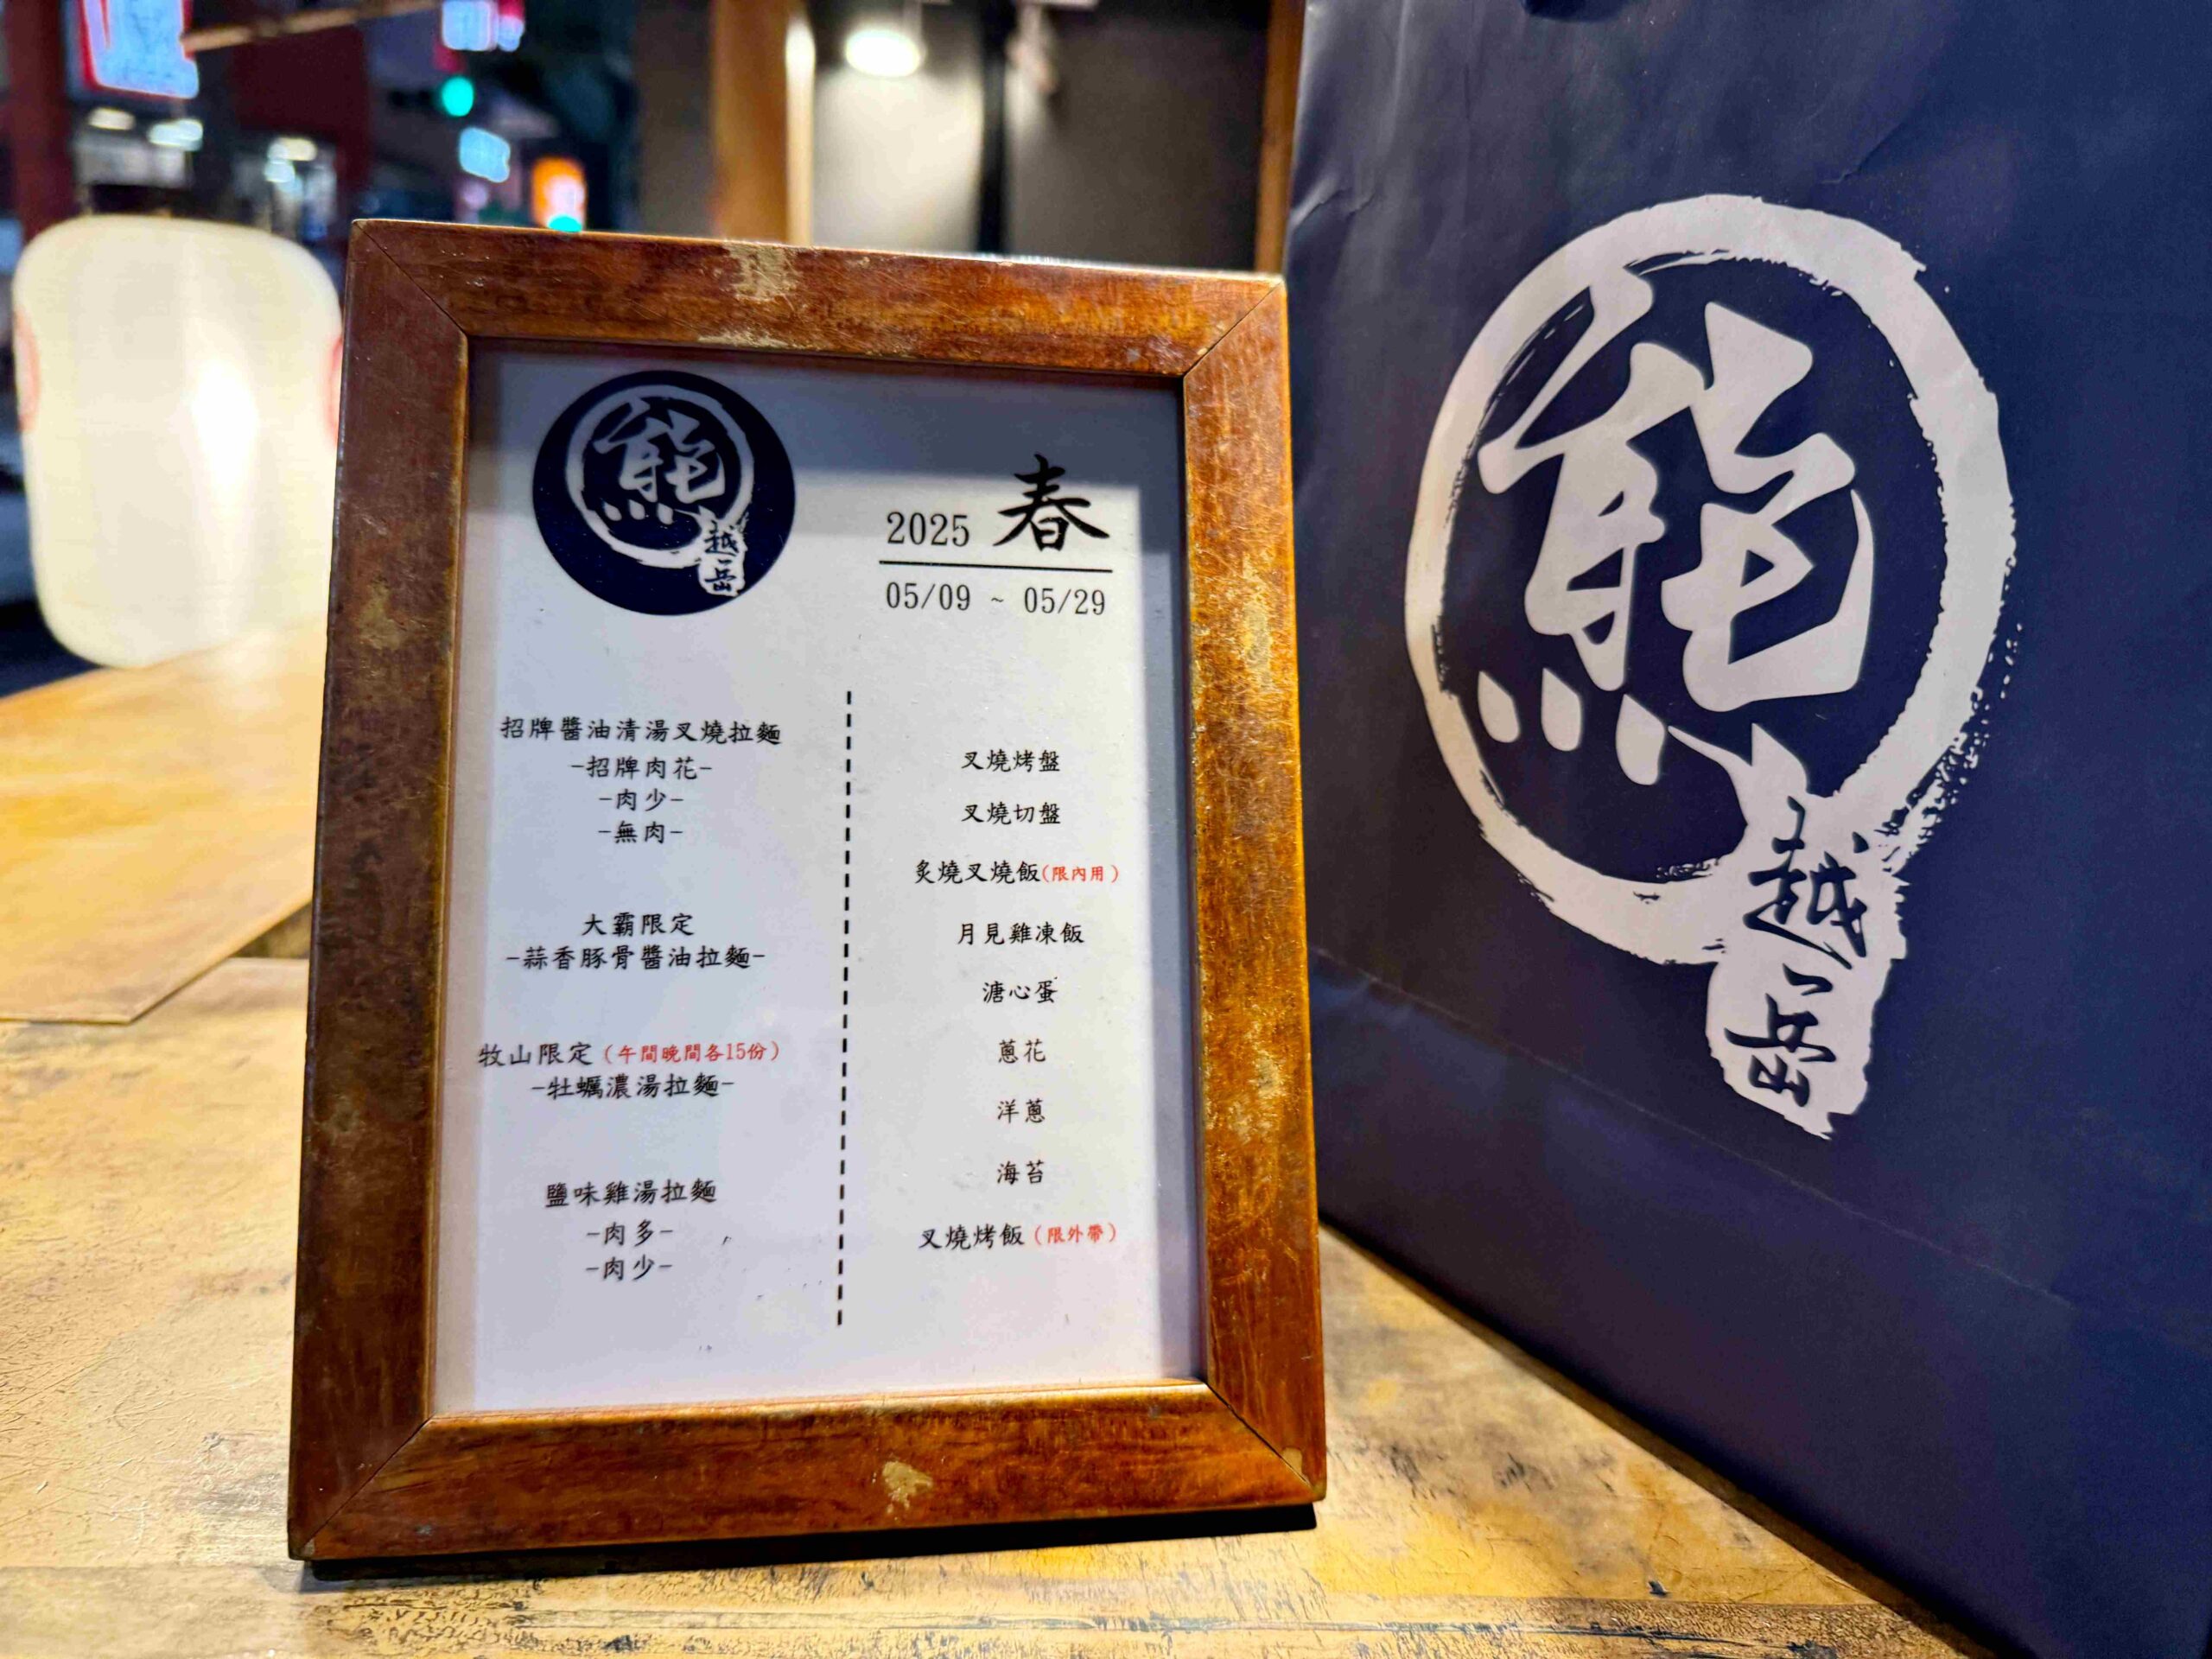 熊
越
岳
2025 春
05/09 ~ 05/29
招牌醬油清湯叉燒拉麵
-招牌肉花-
-肉少-
-無肉-
大霸限定
-蒜香豚骨醬油拉麵-
牧山限定（午間晚間各15份）
-牡蠣濃湯拉麵-
鹽味雞湯拉麵
-肉多-
-肉少-
叉燒烤盤
叉燒切盤
炙燒叉燒飯(限內用)
月見雞凍飯
溏心蛋
蔥花
洋蔥
海苔
叉燒烤飯（限外帶）
熊
越
一
岳